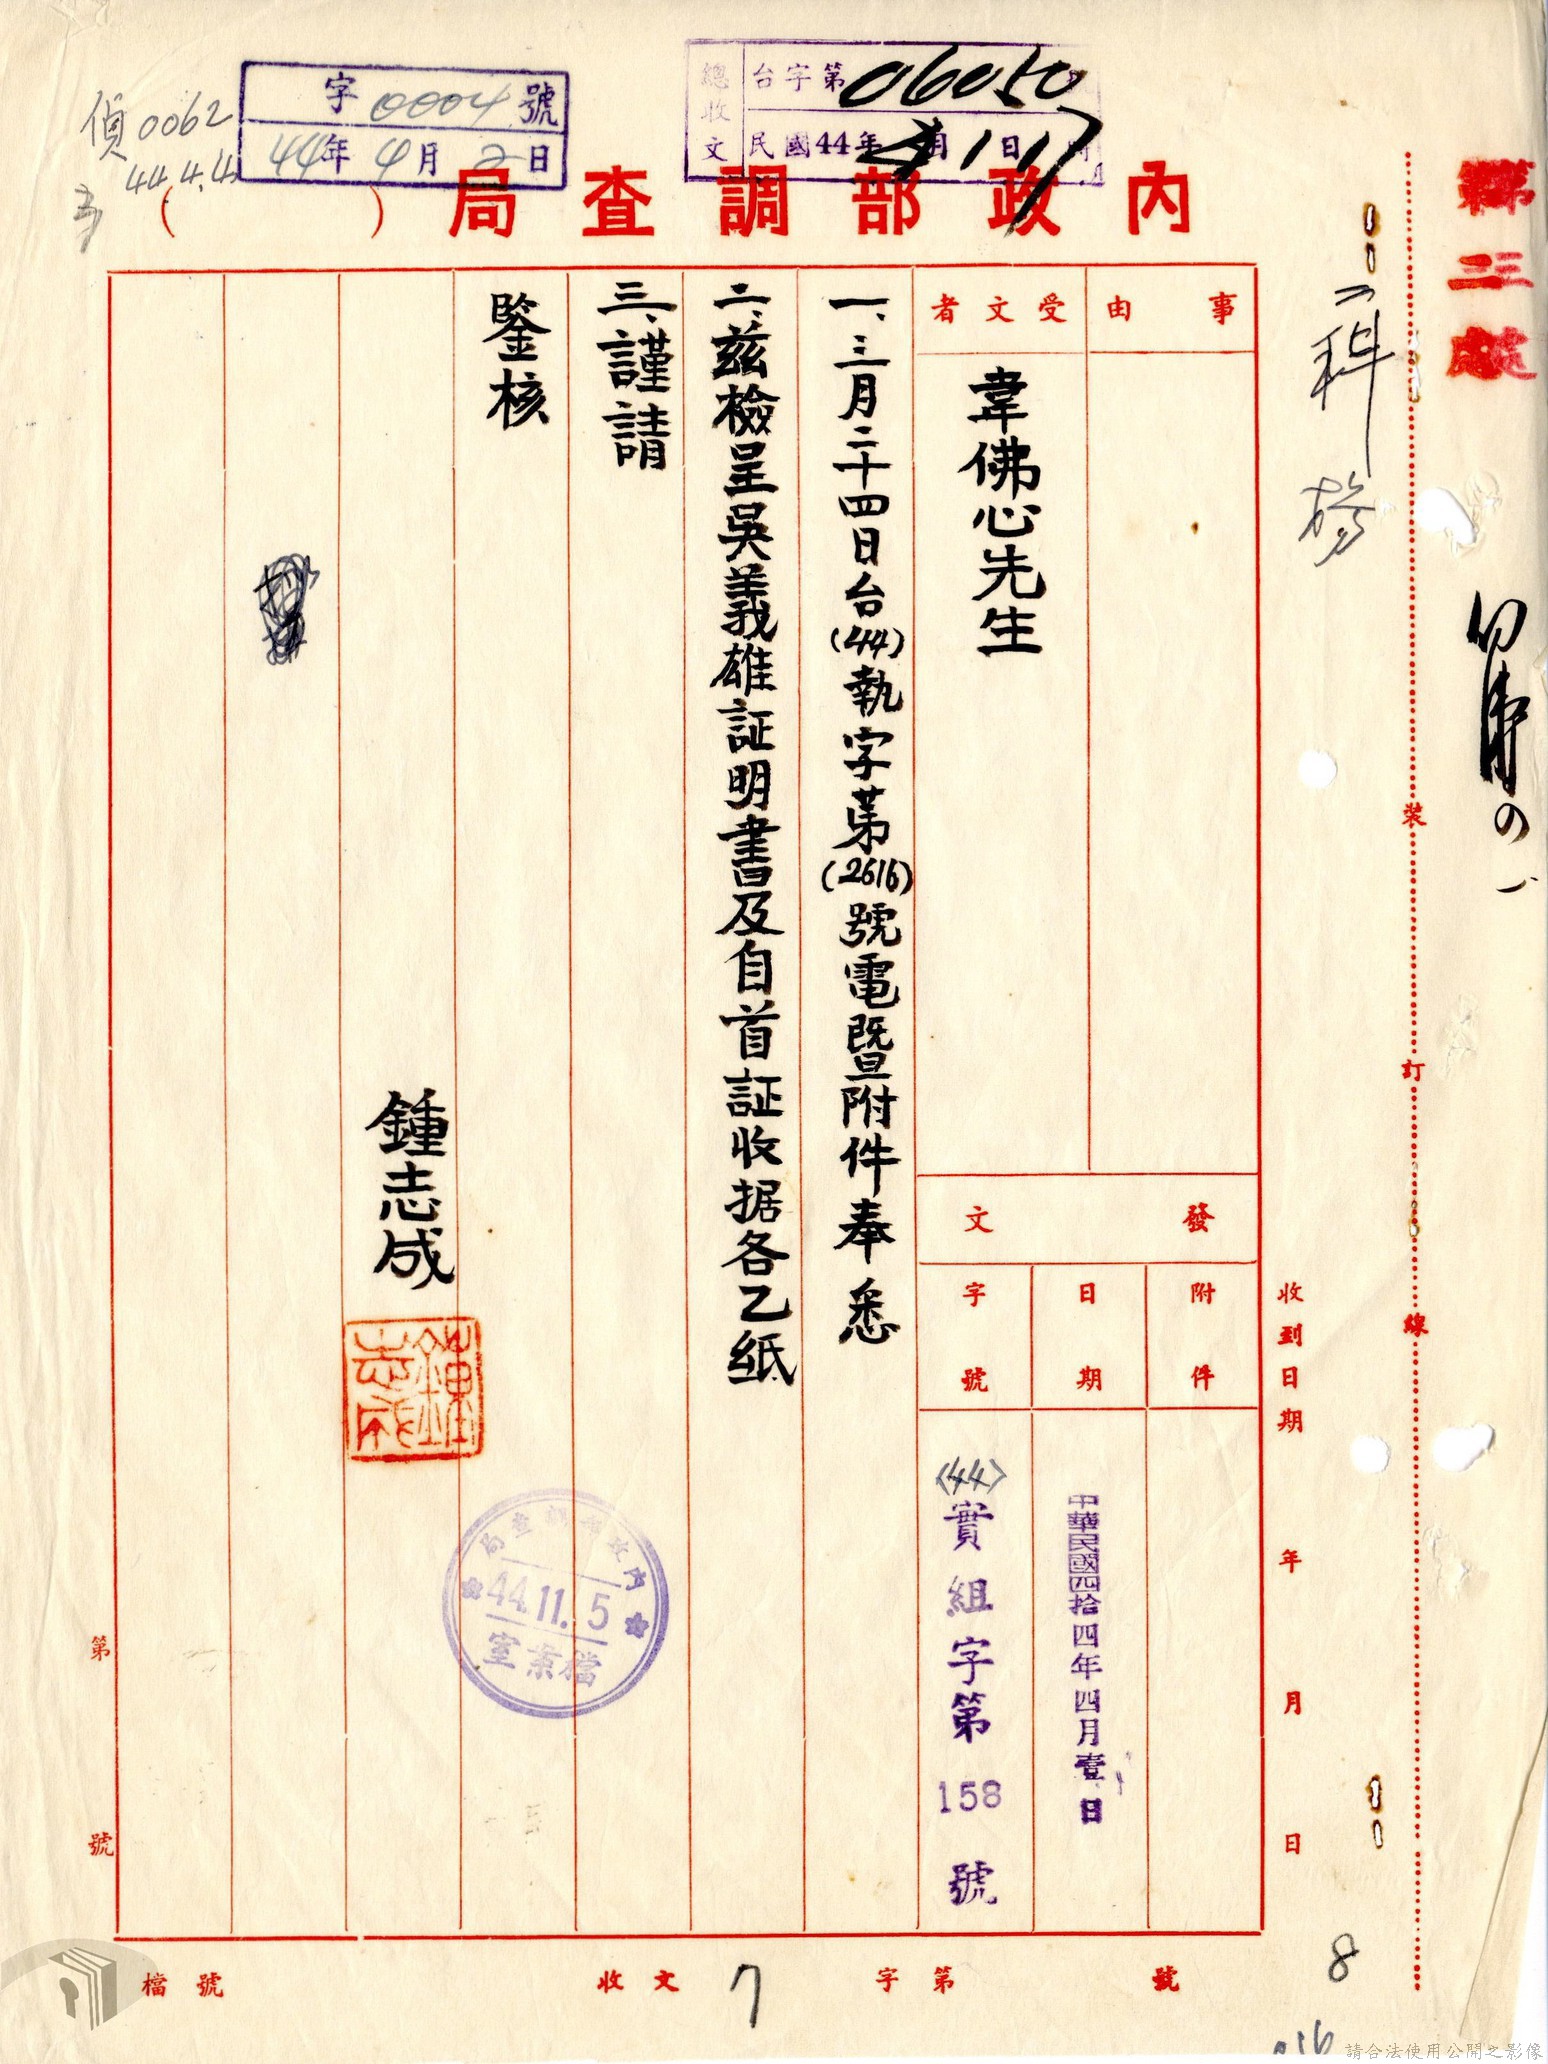 偵0062
44.4.4
字0004號
44年4月2日
總收文
台字第06050
民國44年
內政部調查局（　　）
第三處
二科
事由
受文者
韋佛心先生
發文
附件
日期
中華民國四拾四年四月壹日
字號
〈44〉實組字第158號
一、三月二十四日台(44)執字第(2616)號電暨附件奉悉
二、茲檢呈吳義雄証明書及自首証收据各乙紙
三、謹請
鑒核
鍾志成
鍾志成
內政部調查局
44.11.5
檔案室
裝訂線
收到日期　年　月　日
第　號
檔號
收文　字第　號
7
8
016
請合法使用公開之影像